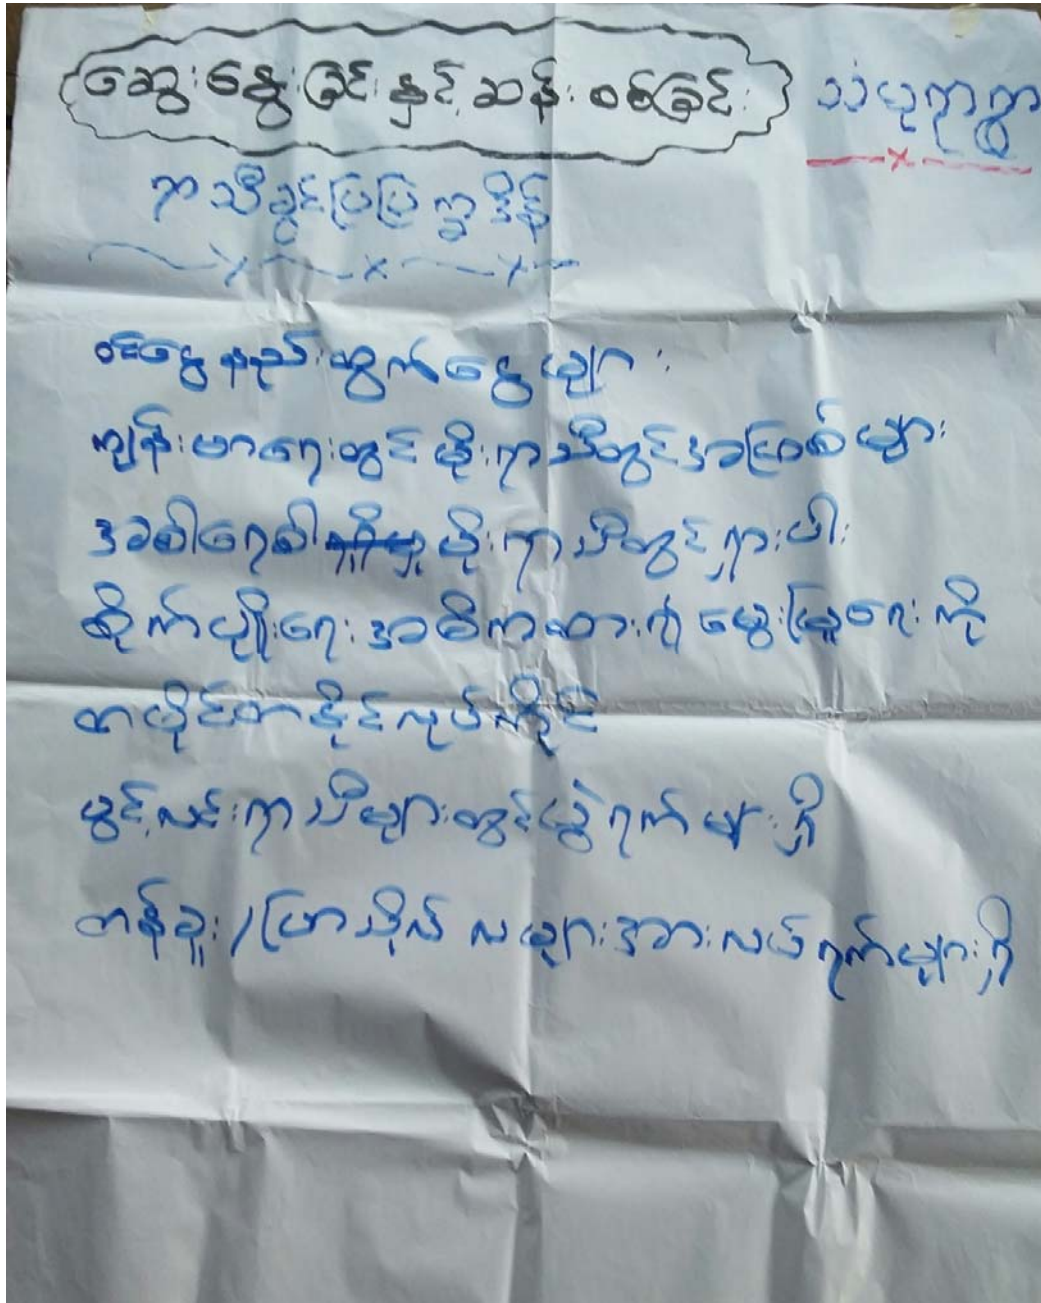 ဆွေးနွေးခြင်းနှင့်ဆန်းစစ်ခြင်း
သံပုရာရွာ
ရာသီခွင်ပြပြက္ခဒိန်
ဝင်ငွေနည်းထွက်ငွေများ
ကျန်းမာရေးတွင်မိုးရာသီတွင်အဖြစ်များ
အစါရေစါမိုးရာသီတွင်ရှားပါး
စိုက်ပျိုးရေးအဓိကထား၍မွေးမြူရေးကို
တပိုင်တနိုင်လုပ်ကိုင်
ပွင့်လင်းရာသီများတွင်ပွဲရက်များရှိ
တန်ခူး/ပြာသိုလ် လများအားလပ်ရက်များရှိ